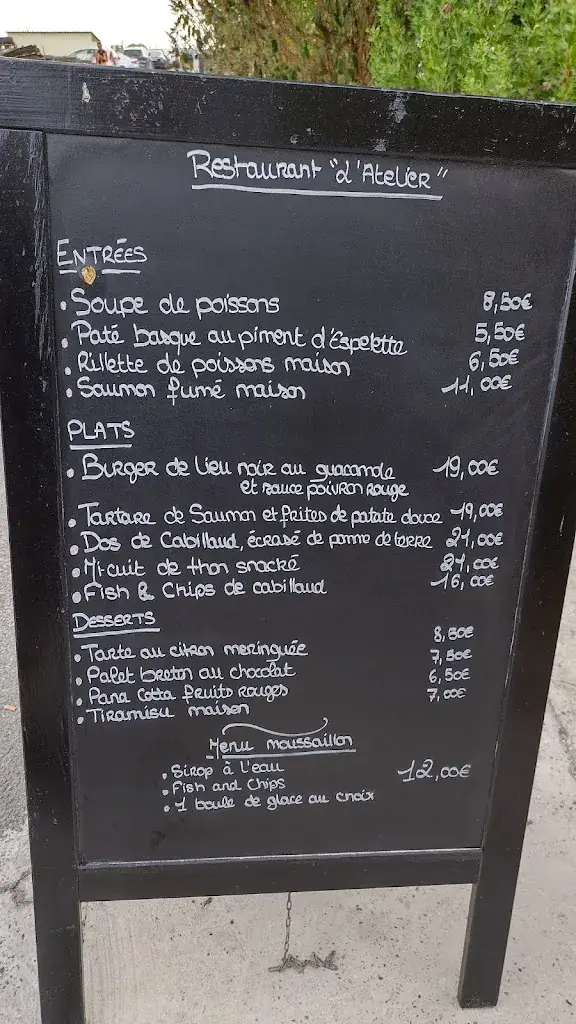 Restaurant "d'Atelier"
ENTRÉES
• Soupe de poissons 8,50€
• Paté basque au piment d'Espelette 5,50€
• Rillette de poissons maison 6,50€
• Saumon fumé maison 11,00€
PLATS
• Burger de lieu noir au guacamole 19,00€
et sauce poivron rouge
• Tartare de Saumon et frites de patate douce 19,00€
• Dos de Cabillaud, écrasé de pomme de terre 21,00€
• Mi-cuit de thon snacké 21,00€
• Fish & Chips de cabillaud 16,00€
DESSERTS
• Tarte au citron meringuée 8,50€
• Palet breton au chocolat 7,50€
• Pana Cotta fruits rouges 6,50€
• Tiramisu maison 7,00€
Menu moussaillon
• Sirop à l'eau
• Fish and Chips 12,00€
• 1 boule de glace au choix